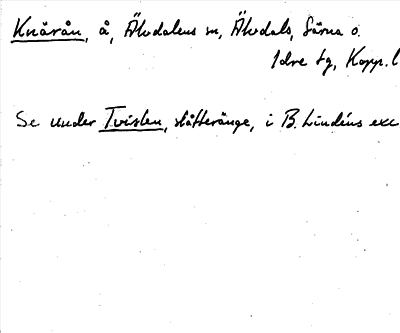 Knärån, å, Älvdalens sn, Älvdals, Särna o.
Idre tg, Kopp. l
Se under Tvisten, slåtteränge, i B. Lindéns exc